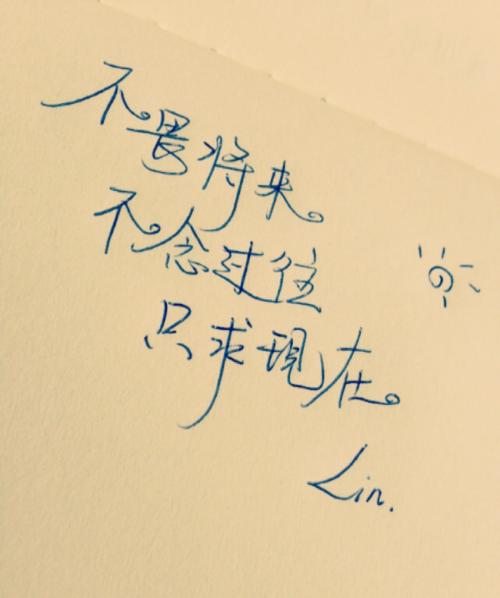 不畏将来。
不念过往
只求現在。
Lin.